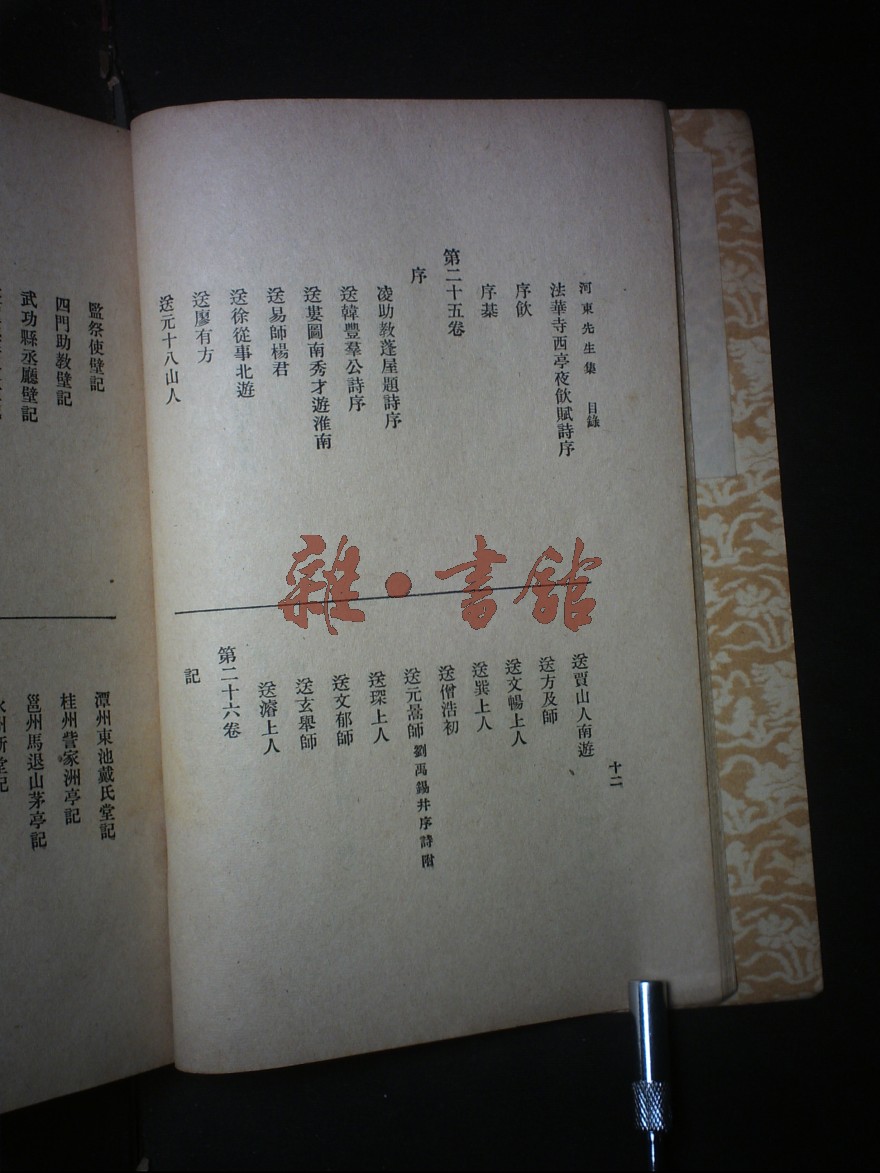 河東先生集 目錄
法華寺西亭夜飲賦詩序
序飲
序棊
第二十五卷
序
凌助教蓬屋題詩序
送韓豐羣公詩序
送婁圖南秀才遊淮南
送易師楊君
送徐從事北遊
送廖有方
送元十八山人
十二
送賈山人南遊
送方及師
送文暢上人
送巽上人
送僧浩初
送元暠師 劉禹錫并序詩附
送琛上人
送文郁師
送玄舉師
送濬上人
第二十六卷
記
監祭使壁記
四門助教壁記
武功縣丞廳壁記
潭州東池戴氏堂記
桂州訾家洲亭記
邕州馬退山茅亭記
雜·書館